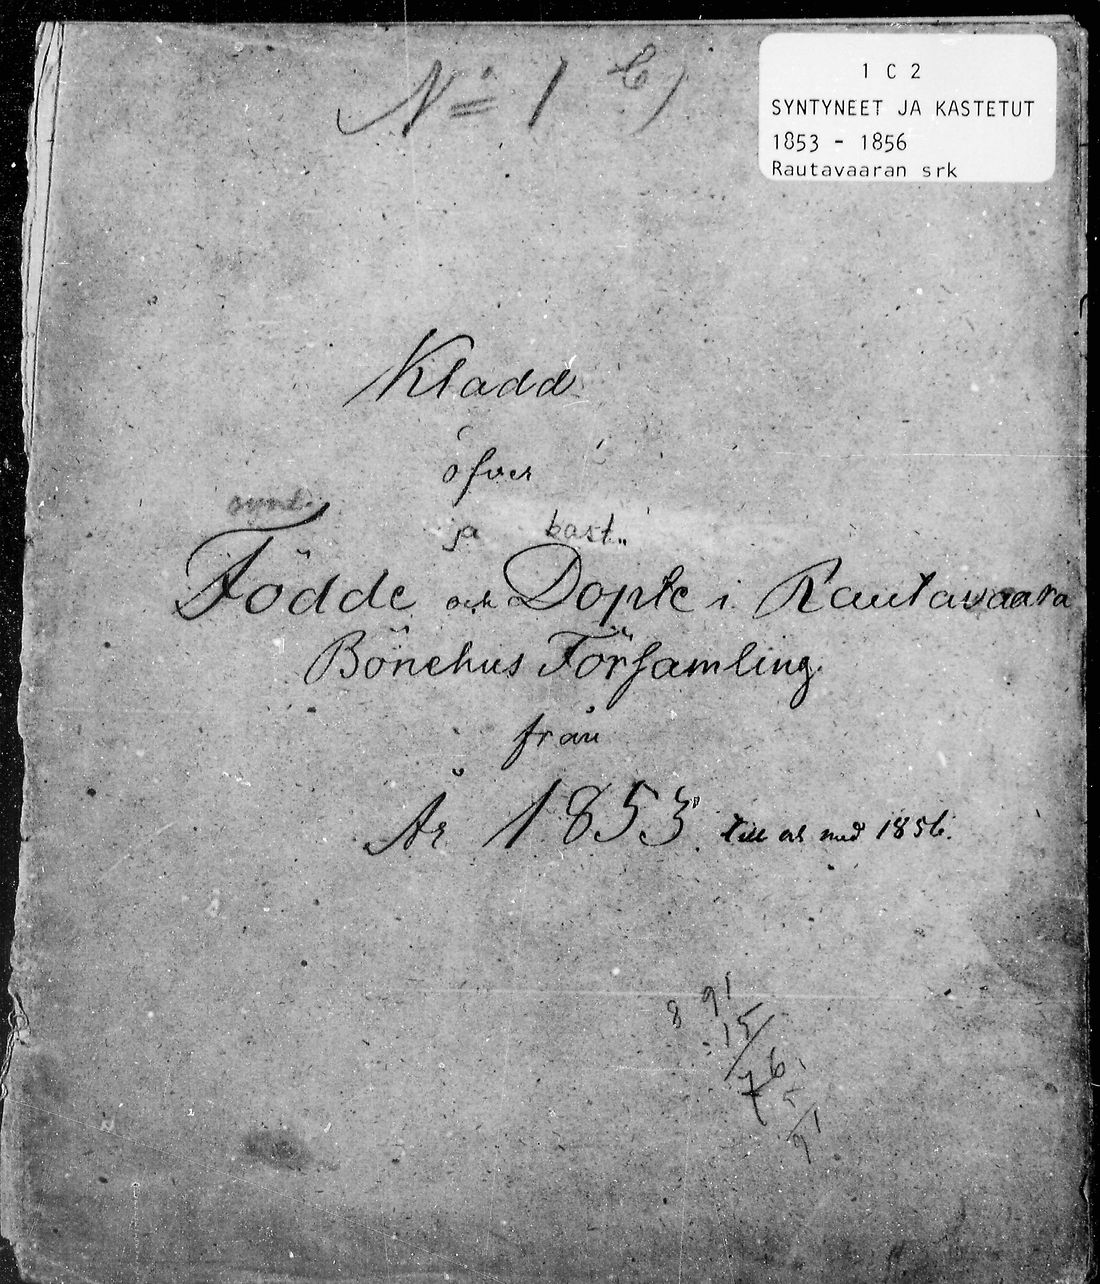 No 1 b)
1 C 2
SYNTYNEET JA KASTETUT
1853 - 1856
Rautavaaran srk
Kladd
öfver
synt.
ja kast.
Födde och Döpte i Rautavaara
Bönehus Församling.
från
År 1853. till och med 1856.
8 91
15
76
5
91